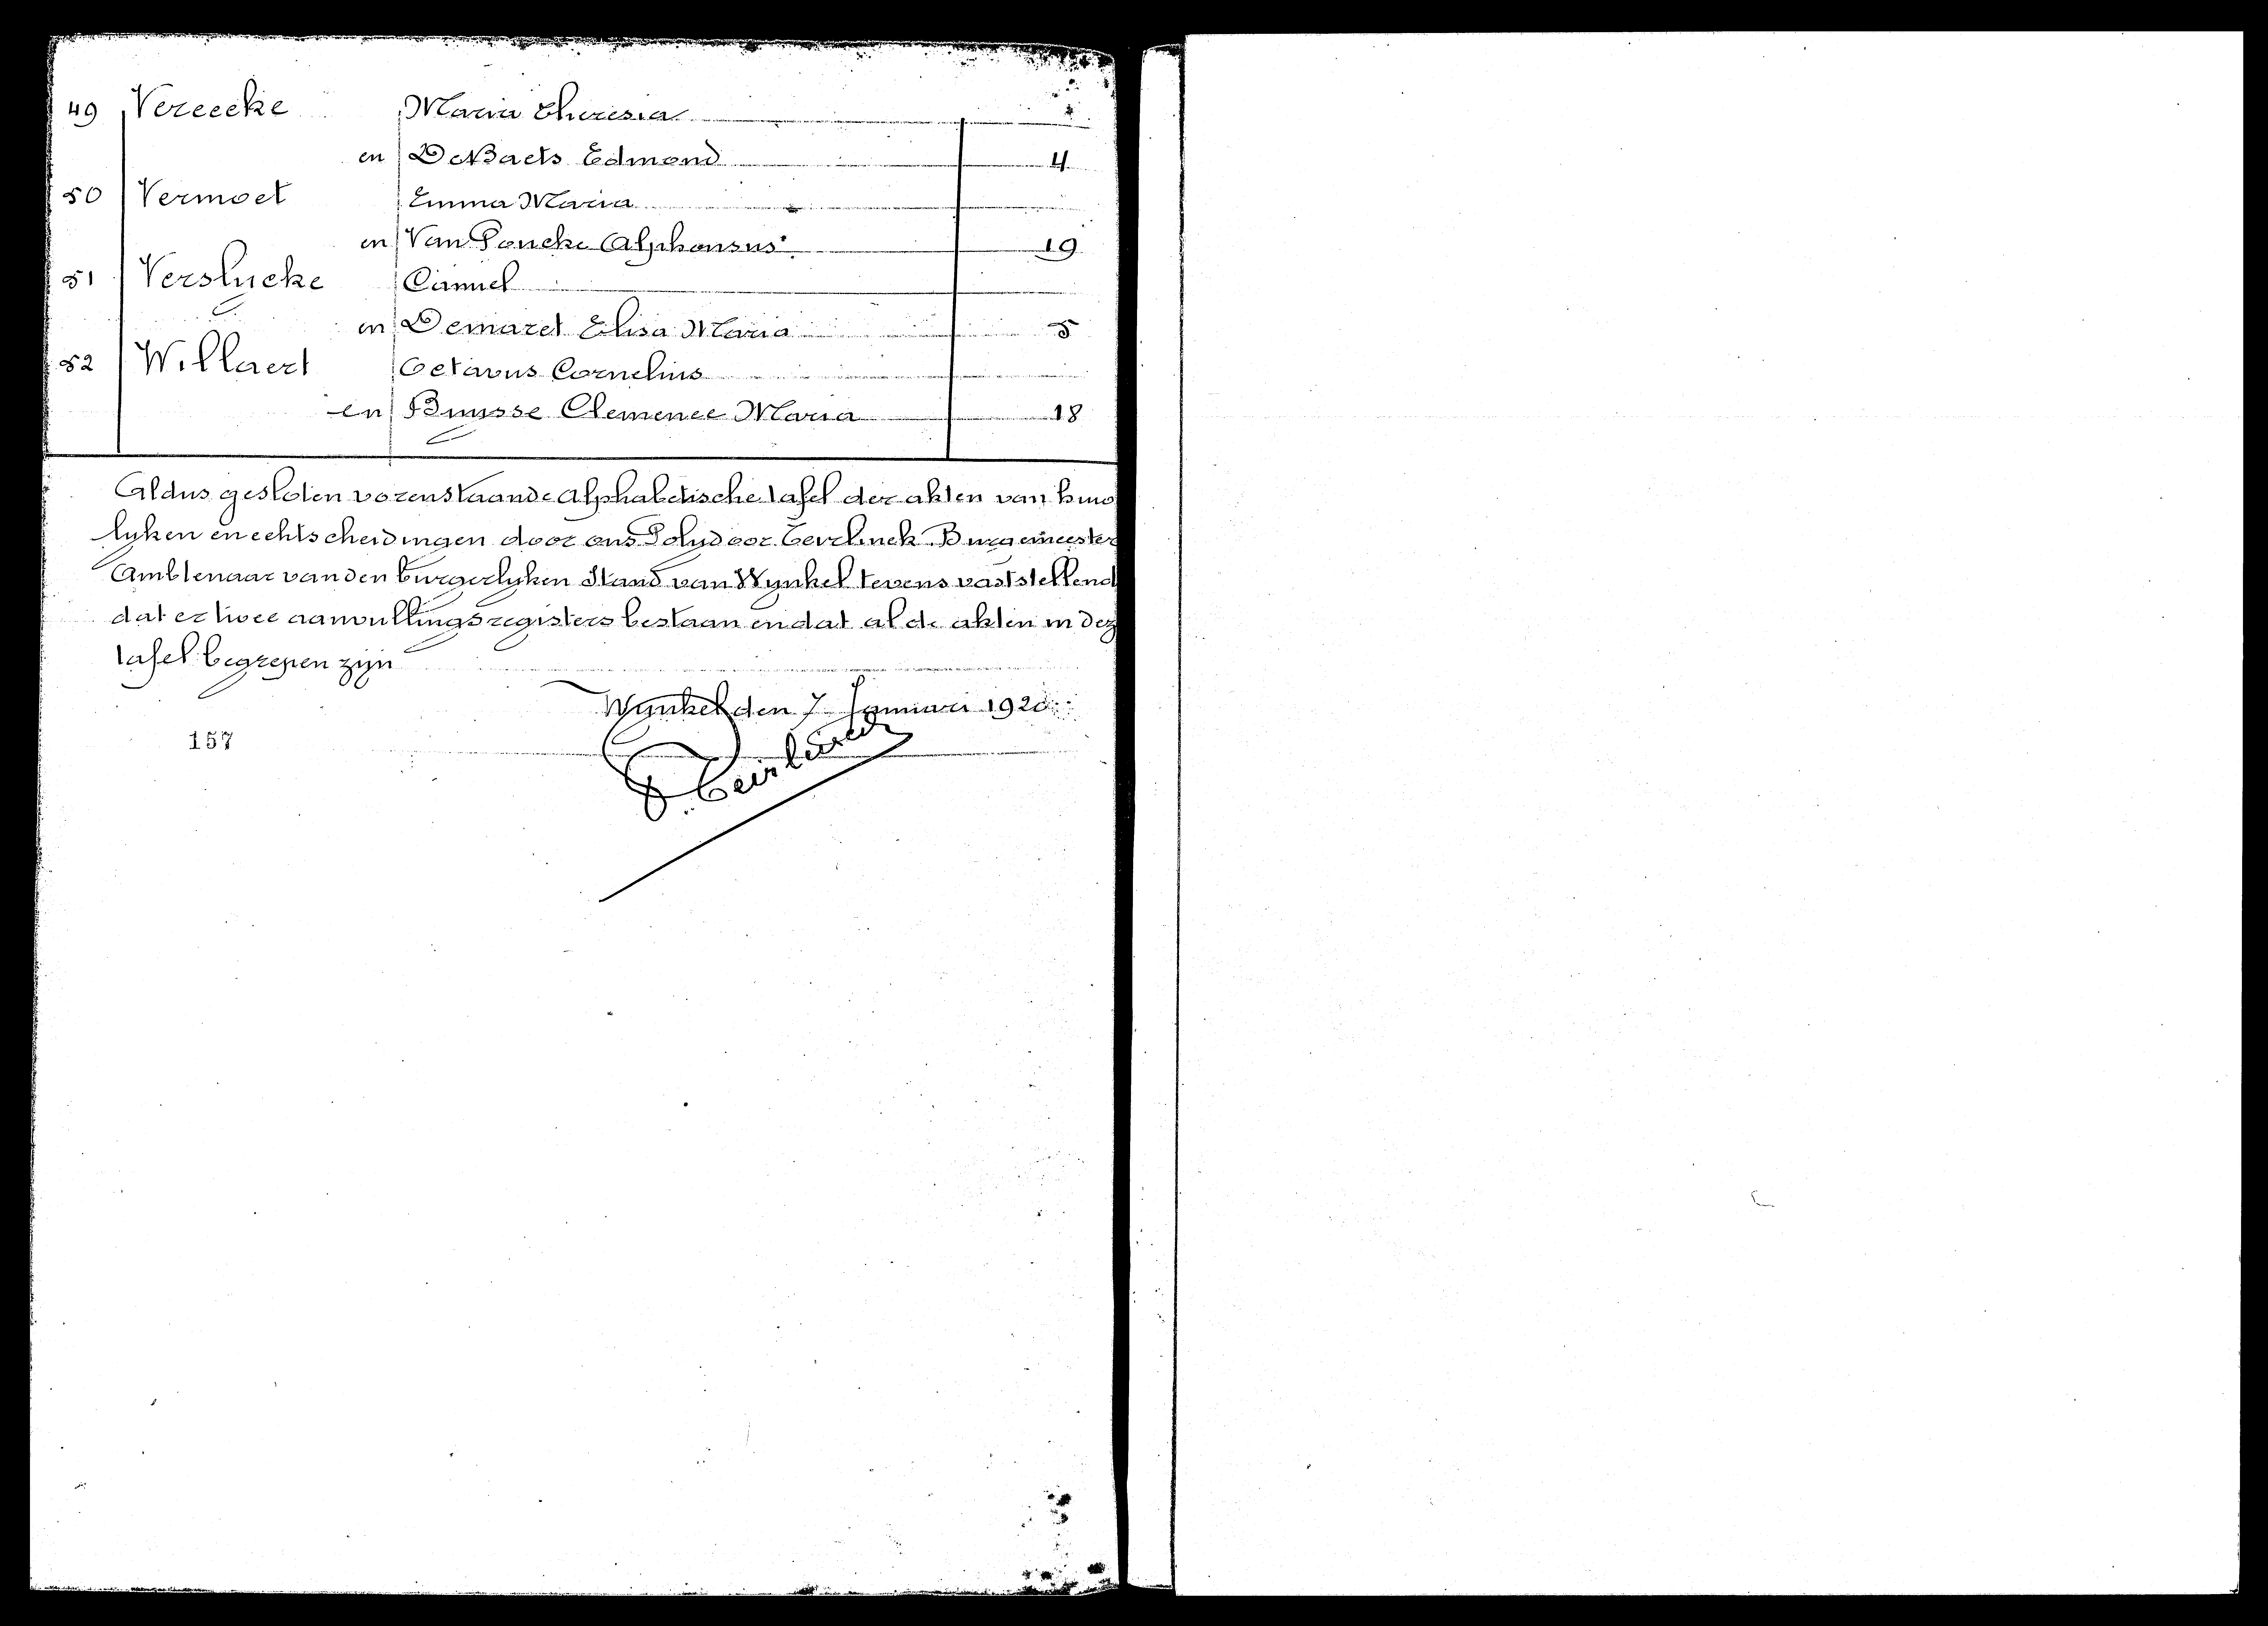 49 Vereecke Maria Theresia
en De Baets Edmond 4
50 Vermoet Emma Maria
en Van Poucke Alphonsus 19
51 Verslycke Camiel
en Demaret Elisa Maria 5
52 Willaert Octavus Cornelius
en Buysse Clemence Maria 18
Aldus gesloten vorenstaande Alphabetische tafel der akten van huwe
lyken en echtscheidingen door ons Polydoor Teirlinck Burgemeester
Ambtenaar van den burgerlyken Stand van Wynkel tevens vaststellend
dat er twee aanvullingsregisters bestaan en dat al de akten in dez
tafel begrepen zijn
Wynkel den 7 Januari 1920
157
P. Teirlinck